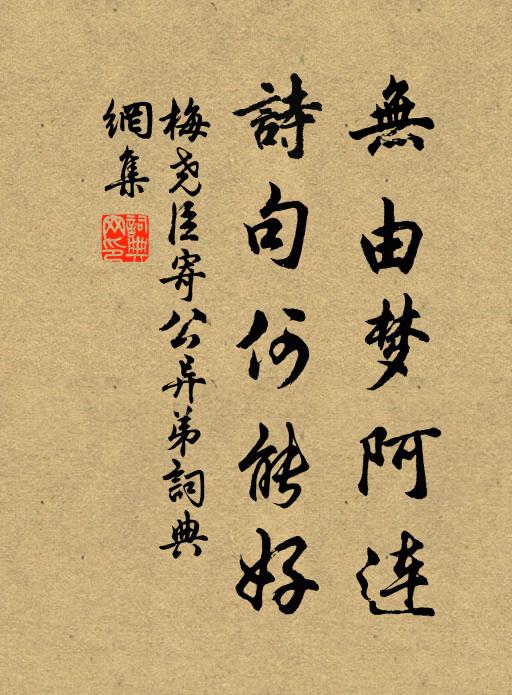 無由梦阿连
詩句何能好
梅尧臣寄公异弟詞典
網集
詞典
网印